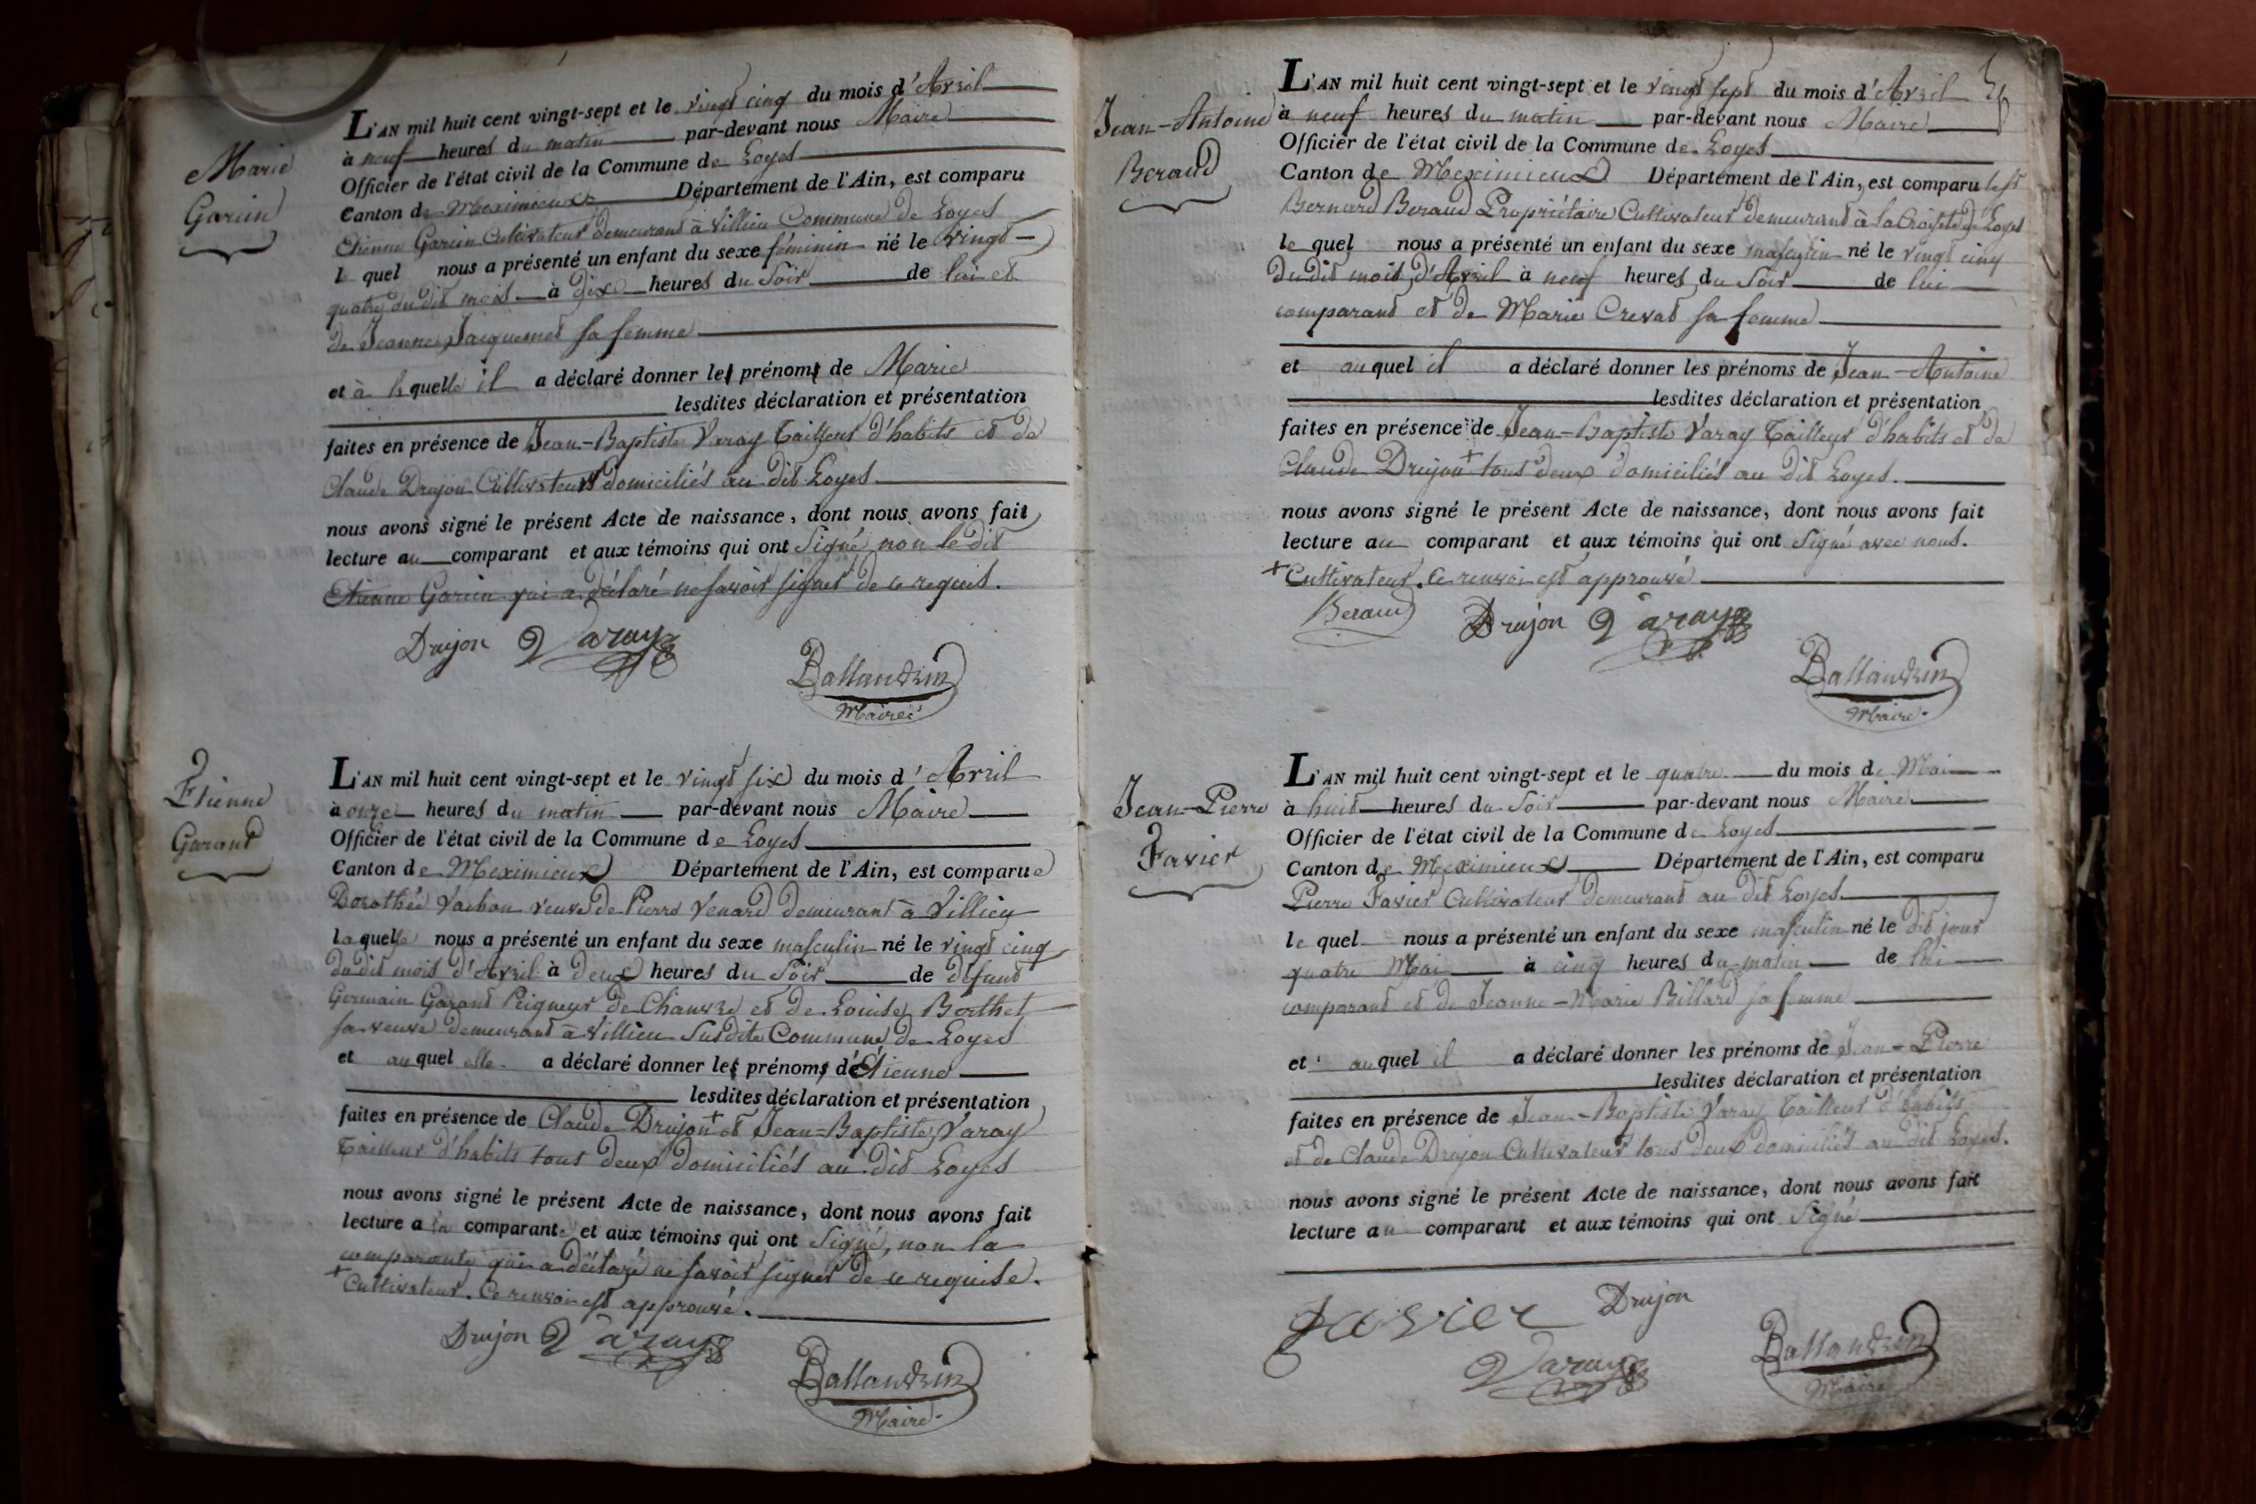 Marie
Garin
L'AN mil huit cent vingt-sept et le vingt cinq du mois d'Avril
à neuf heures du matin par-devant nous Maire
Officier de l'état civil de la Commune de Loyes
Canton de Meximieux Département de l'Ain, est comparu
Etienne Garin Cultivateur demeurant à Villieu Commune de Loyes
le quel nous a présenté un enfant du sexe féminin né le vingt
quatre du dit mois à dix heures du Soir de lui et
de Jeanne Jacquemet sa femme
et à la quelle il a déclaré donner les prénoms de Marie
lesdites déclaration et présentation
faites en présence de Jean-Baptiste Varay Tailleur d'habits et de
Claude Drujon Cultivateur domiciliés au dit Loyes
nous avons signé le présent Acte de naissance, dont nous avons fait
lecture au comparant et aux témoins qui ont Signé, non le dit
Etienne Garin qui a déclaré ne savoir signer de ce requis.
Drujon Varay
Ballandrin
Maire
Etienne
Garant
L'AN mil huit cent vingt-sept et le vingt six du mois d'Avril
à onze heures du matin par-devant nous Maire
Officier de l'état civil de la Commune de Loyes
Canton de Meximieux Département de l'Ain, est comparue
Dorothée Vachon veuve de Pierre Venard demeurant à Villieu
la quelle nous a présenté un enfant du sexe masculin né le vingt cinq
du dit mois d'Avril à deux heures du Soir de défunt
Germain Garant Peigneur de Chanvre et de Louise Berthet
sa veuve demeurant à Villieu Susdite Commune de Loyes
et au quel elle a déclaré donner les prénoms d'Etienne
lesdites déclaration et présentation
faites en présence de Claude Drujon + et Jean-Baptiste Varay
Tailleur d'habits tous deux domiciliés au dit Loyes
nous avons signé le présent Acte de naissance, dont nous avons fait
lecture a la comparante et aux témoins qui ont Signé, non la
comparante qui a déclaré ne savoir signer de ce requise.
+ Cultivateur. Ce renvoi est approuvé.
Drujon Varay
Ballandrin
Maire
Jean-Antoine
Beraud
L'AN mil huit cent vingt-sept et le vingt sept du mois d'Avril
à neuf heures du matin par-devant nous Maire
Officier de l'état civil de la Commune de Loyes
Canton de Meximieux Département de l'Ain, est comparu
Bernard Beraud Propriétaire Cultivateur demeurant à la Croisette de Loyes
le quel nous a présenté un enfant du sexe masculin né le vingt cinq
du dit mois d'Avril à neuf heures du Soir de lui
comparant et de Marie Crevat sa femme
et au quel il a déclaré donner les prénoms de Jean-Antoine
lesdites déclaration et présentation
faites en présence de Jean-Baptiste Varay Tailleur d'habits et de
Claude Drujon + tous deux domiciliés au dit Loyes.
nous avons signé le présent Acte de naissance, dont nous avons fait
lecture au comparant et aux témoins qui ont Signé avec nous.
+ Cultivateur. Ce renvoi est approuvé
Beraud Drujon Varay
Ballandrin
Maire
Jean-Pierre
Favier
L'AN mil huit cent vingt-sept et le quatre du mois de Mai
à huit heures du Soir par-devant nous Maire
Officier de l'état civil de la Commune de Loyes
Canton de Meximieux Département de l'Ain, est comparu
Pierre Favier Cultivateur demeurant au dit Loyes
le quel nous a présenté un enfant du sexe masculin né le dit jour
quatre Mai à cinq heures du matin de lui
comparant et de Jeanne-Marie Billard sa femme
et au quel il a déclaré donner les prénoms de Jean-Pierre
lesdites déclaration et présentation
faites en présence de Jean-Baptiste Varay Tailleur d'habits
et de Claude Drujon Cultivateur tous deux domiciliés au dit Loyes.
nous avons signé le présent Acte de naissance, dont nous avons fait
lecture au comparant et aux témoins qui ont Signé
Favier Drujon
Varay
Ballandrin
Maire